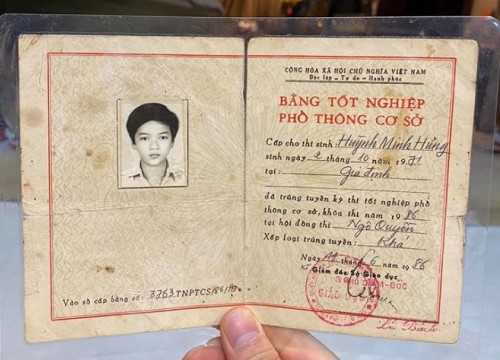 Vào sổ cấp bằng số: 3763.TNPTCS/86/
CỘNG HÒA XÃ HỘI CHỦ NGHĨA VIỆT NAM
Độc lập - Tự do - Hạnh phúc
BẰNG TỐT NGHIỆP
PHỔ THÔNG CƠ SỞ
Cấp cho thí sinh Huỳnh Minh Hùng
sinh ngày 2 tháng 10 năm 1971
tại: Gia định
đã trúng tuyển kỳ thi tốt nghiệp phổ
thông cơ sở, khóa thi năm 1986
tại hội đồng thi: Ngô Quyền
Xếp loại trúng tuyển: Khá
Ngày 11 tháng 6 năm 1986
Giám đốc Sở Giáo dục
GIÁM ĐỐC